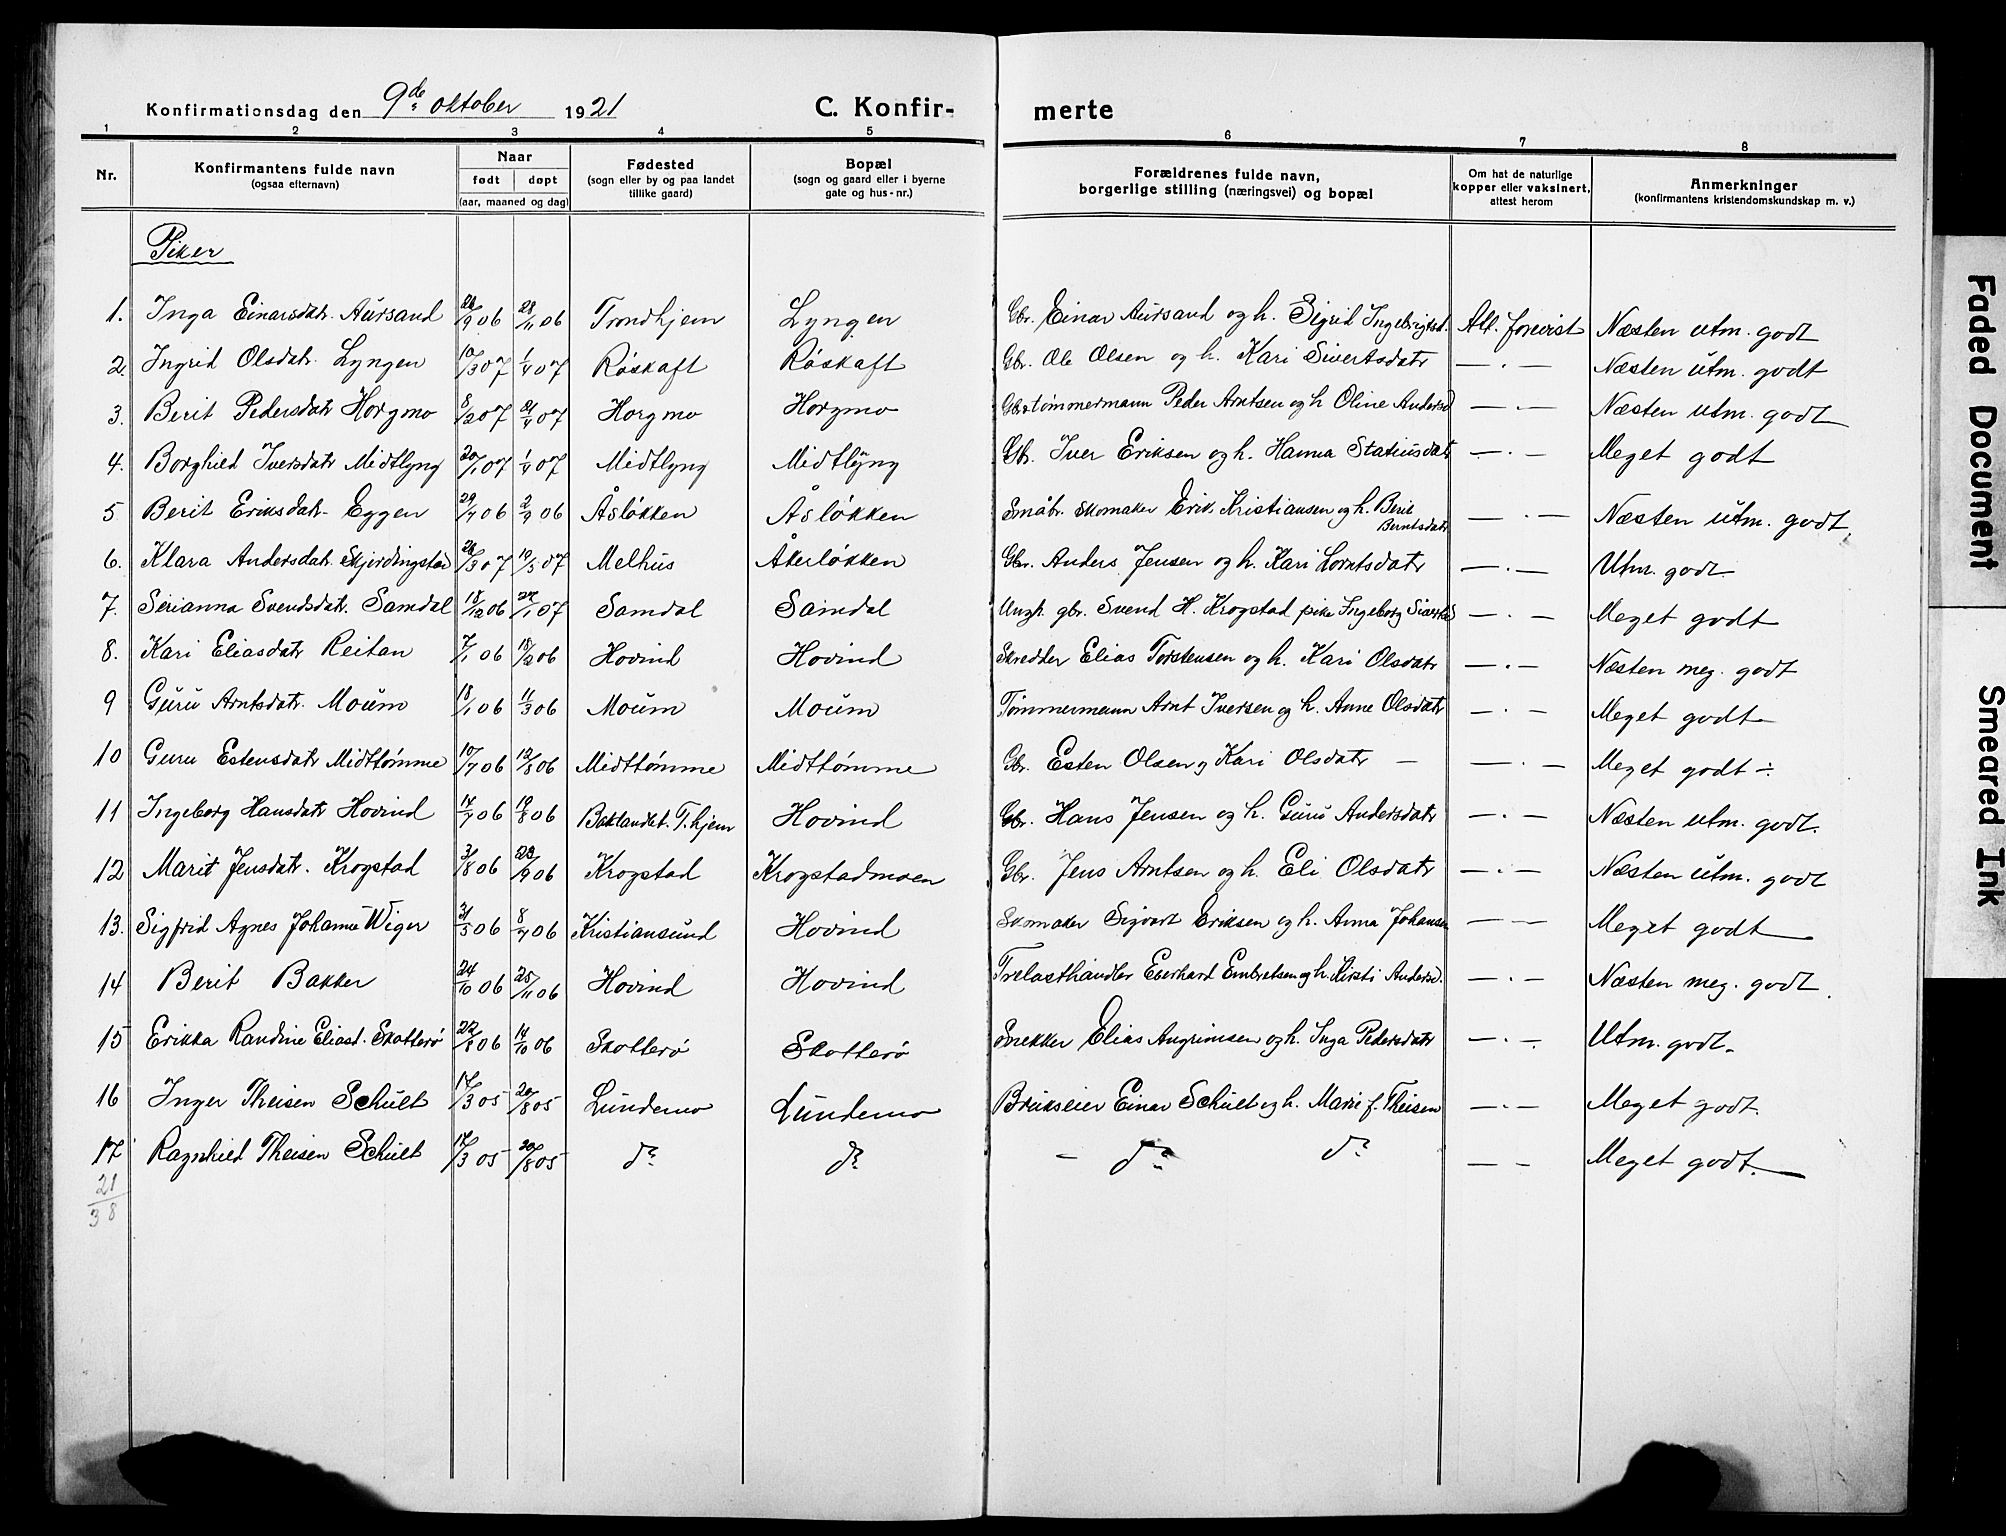 Konfirmationsdag den 9de oktober 1921 C. Konfir- merte
1 2 3 4 5 6 7 8
Nr. Konfirmantens fulde navn (ogsaa efternavn) Naar født døpt (aar, maaned og dag) Fødested (sogn eller by og paa landet tillike gaard) Bopæl (sogn og gaard eller i byerne gate og hus-nr.) Forældrenes fulde navn, borgerlige stilling (næringsvei) og bopæl Om hat de naturlige kopper eller vaksinert, attest herom Anmerkninger (konfirmantens kristendomskundskap m. v.)
Piker
1. Inga Einarsdatr. Aursand 26/9 06 28/11 06 Trondhjem Lyngen Gbr. Einar Aursand og h. Sigrid Ingebrigtsd. Att. forevist Næsten utm. godt
2. Ingrid Olsdatr. Lyngen 10/3 07 1/4 07 Røskaft Røskaft Gbr. Ole Olsen og h. Kari Sivertsdatr — . — Næsten utm. godt
3. Berit Pedersdatr Horgmo 8/2 07 21/4 07 Horgmo Horgmo Gbr tømmermann Peder Arntsen og h Oline Andersd — . — Næsten utm. godt
4. Borghild Iversdatr Midtlyng 20/1 07 1/4 07 Midtlyng Midtlyng Gbr. Iver Eriksen og h. Hanna Statiusdatr — . — Meget godt
5 Berit Eriksdatr. Eggen 29/7 06 2/9 06 Åsløkken Åsløkken Småbr. skomaker Erik Kristiansen og h. Berit Berntsdatr — . — Næsten utm. godt.
6. Klara Andersdatr. Skjerdingstad 28/3 07 19/5 07 Melhus Åkerløkken Gbr. Anders Jensen og h. Kari Lorntsdatr — . — Utm. godt
7. Serianna Svendsdatr. Samdal 18/12 06 27/1 07 Samdal Samdal Ungk. gbr. Svend H. Krogstad pike Ingeborg — . — Meget godt
8. Kari Eliasdatr Reitan 7/1 06 18/2 06 Hovind Hovind Skredder Elias Torstensen og h. Kari Olsdatr — . — Næsten meg. godt
9 Guru Arntsdatr. Moum 18/1 06 11/3 06 Moum Moum Tømmermann Arnt Iversen og h. Anne Olsdatr — . — Meget godt
10 Guru Estensdatr Midttømme 10/7 06 12/8 06 Midttømme Midttømme Gbr. Esten Olsen og Kari Olsdatr — — . — Meget godt ÷
11 Ingeborg Hansdatr Hovind 14/7 06 19/8 06 Baklandet. T.hjem Hovind Gbr. Hans Jensen og h. Guru Andersdatr — . — Næsten utm. godt.
12 Marit Jensdatr. Krogstad 3/8 06 23/9 06 Krogstad Krogstadmoen Gbr. Jens Arntsen og h. Eli Olsdatr — . — Næsten utm. godt
13. Sigfrid Agnes Johanne Wiger 31/5 06 8/7 06 Kristiansund Hovind Skomaker Sigvart Eriksen og h. Anna Johansen — — Meget godt
14 Berit Bakken 24/10 06 25/11 06 Hovind Hovind Trelasthandler Everhard Embretsen og h. Kirsti Andersd. — . — Næsten meg. godt.
15 Erikka Randine Eliasd. Skotterø 22/8 06 14/10 06 Skotterø Skotterø Snekker Elias Angrimsen og h. Inga Pedersdatr — . — Utm. godt.
16 Inger Theisen Schult 17/3 05 20/8 05 Lundemo Lundemo Brukseier Einar Schult og h. Marie f. Theisen — . — Meget godt.
17 Ragnhild Theisen Schult 17/3 05 20/8 05 do do — do do — — Meget godt.
21
38
Faded Document
Smeared Ink